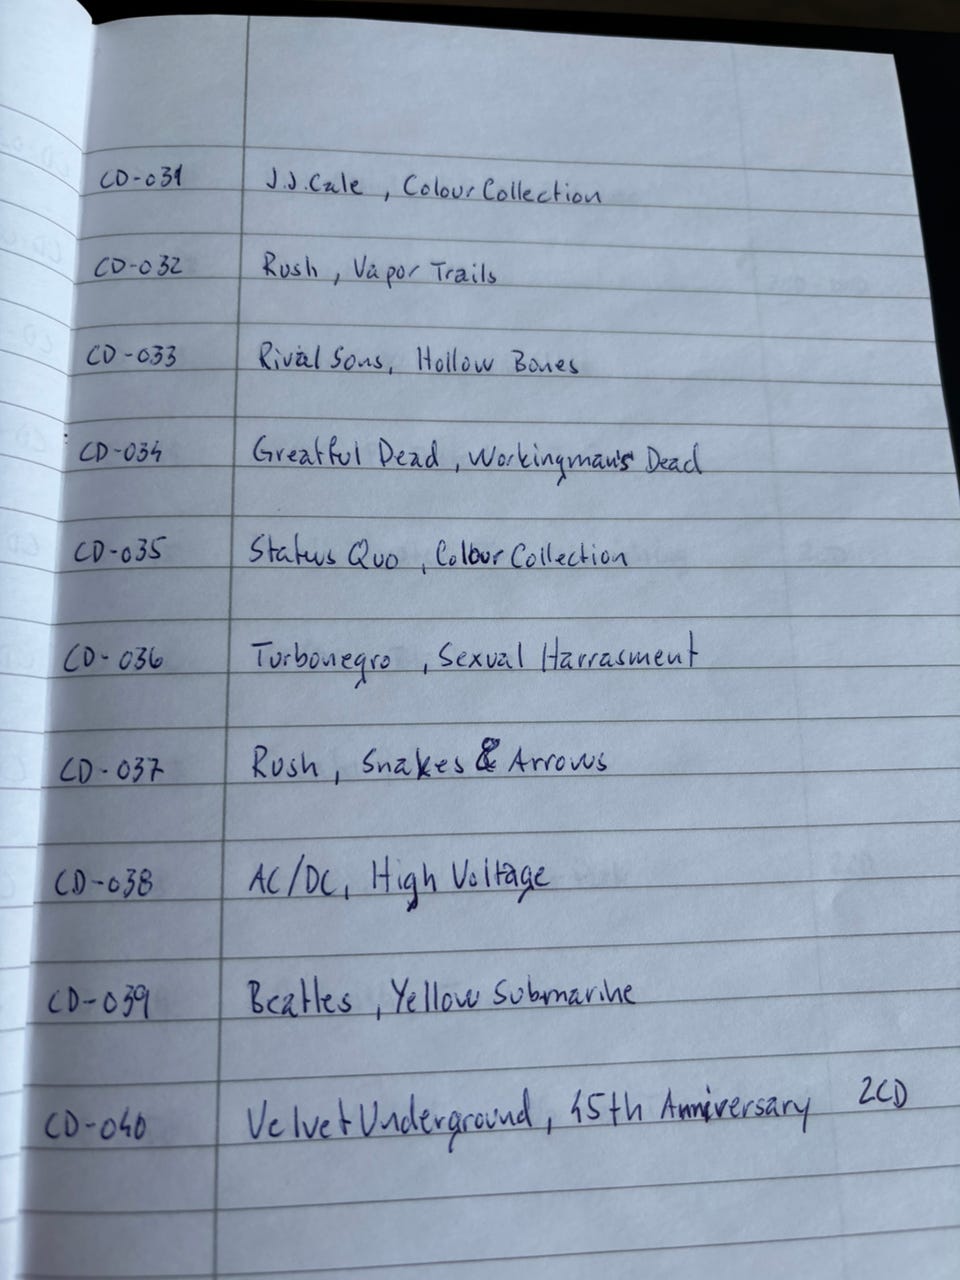 CD-031 J.J.Cale, Colour Collection
CD-032 Rush, Vapor Trails
CD-033 Rival Sons, Hollow Bones
CD-034 Greatful Dead, Workingman's Dead
CD-035 Status Quo, Colour Collection
CD-036 Turbonegro, Sexual Harrasment
CD-037 Rush, Snakes & Arrows
CD-038 AC/DC, High Voltage
CD-039 Beatles, Yellow Submarine
CD-040 Velvet Underground, 45th Anniversary 2CD